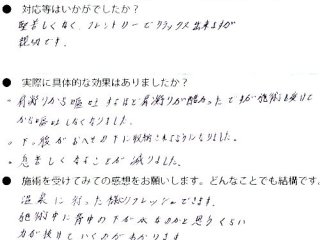 ● 対応等はいかがでしたか？
堅苦しくなく、フレンドリーでリラックス出来ますが
親切です。
● 実際に具体的な効果はありましたか？
。肩凝りから嘔吐するほど肩凝りが酷かったですが施術を受けて
から嘔吐しなくなりました。
。下っ腹がおへその下に収納されるようになりました。
。息苦しくなることが減りました。
● 施術を受けてみての感想をお願いします。どんなことでも結構です。
温泉に行った様にリフレッシュできます。
施術中に背中の下が水なのかと思うくらい
力が抜けていくのがわかります